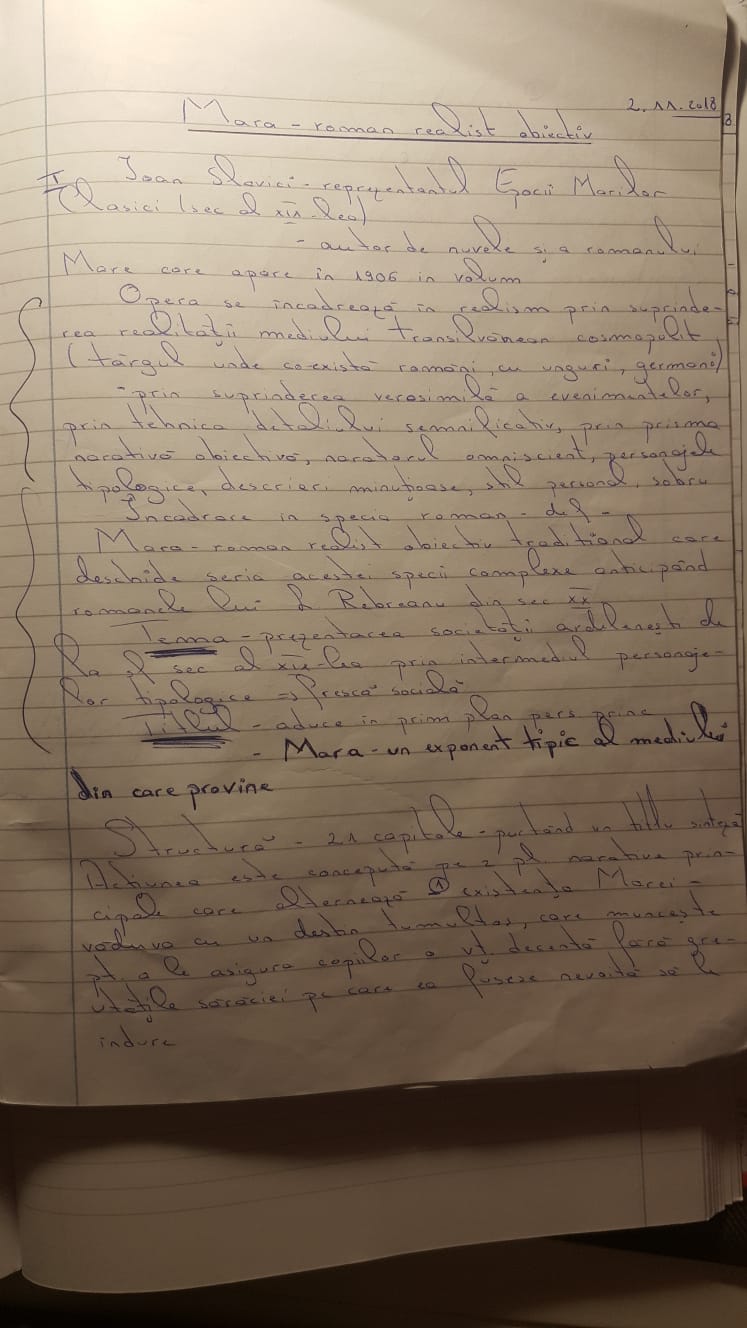 2.11.2018
Mara - roman realist obiectiv
I Ioan Slavici - reprezentantul Epocii Marilor
Clasici (sec al XIX-lea)
- autor de nuvele și a romanului
Mara care apare în 1906 în volum
Opera se încadrează în realism prin suprinde-
rea realității mediului transilvănean cosmopolit
(târgul unde co-există români, cu unguri, germani)
- prin suprinderea verosimilă a evenimentelor,
prin tehnica detaliului semnificativ, prin prisma
narativă obiectivă, naratorul omniscient, personajele
tipologice, descrieri minuțioase, stil personal, sobru
Încadrare in specia roman - def -
Mara - roman realist obiectiv tradițional care
deschide seria acestei specii complexe anticipând
romanele lui L Rebreanu din sec XX
Tema - prezentarea societății ardelenești de
la sf sec al XIX-lea prin intermediul personaje-
lor tipologice => frescă socială
Titlul - aduce in prim plan pers princ
- Mara - un exponent tipic al mediului
din care provine
Structură - 21 capitole - purtând un titlu sinteză
Acțiunea este concepută pe 2 pl. narative prin-
cipale care alternează ① existența Marei -
văduva cu un destin tumultos, care muncește
pt a le asigura copiilor o vț. decentă fără gre-
utățile sărăciei pe care ea fusese nevoită să le
indure